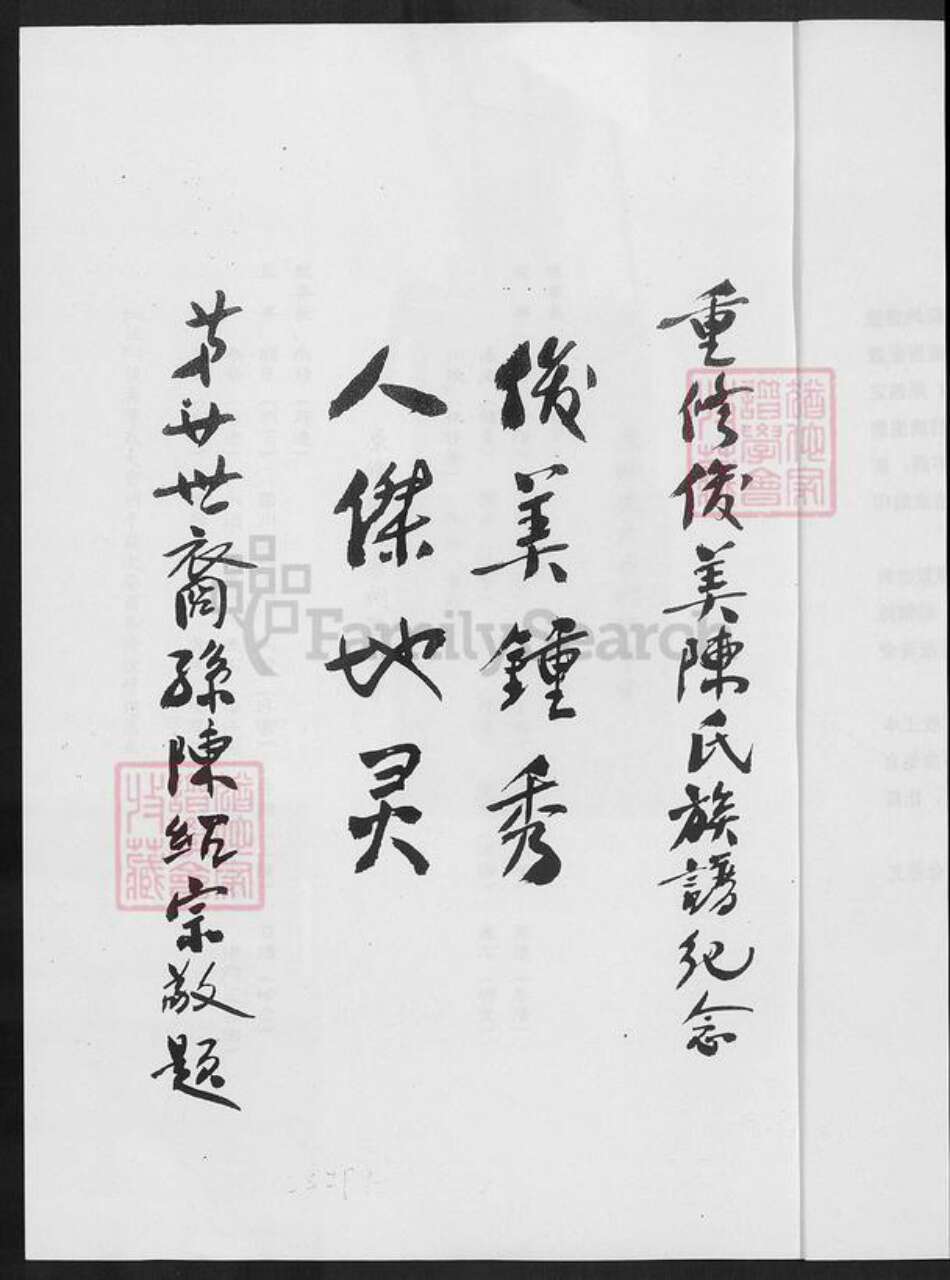 重修俊美陳氏族譜纪念
俊美鍾秀
人傑地灵
苐廿世裔孫陳紹宗敬題
FamilySearch